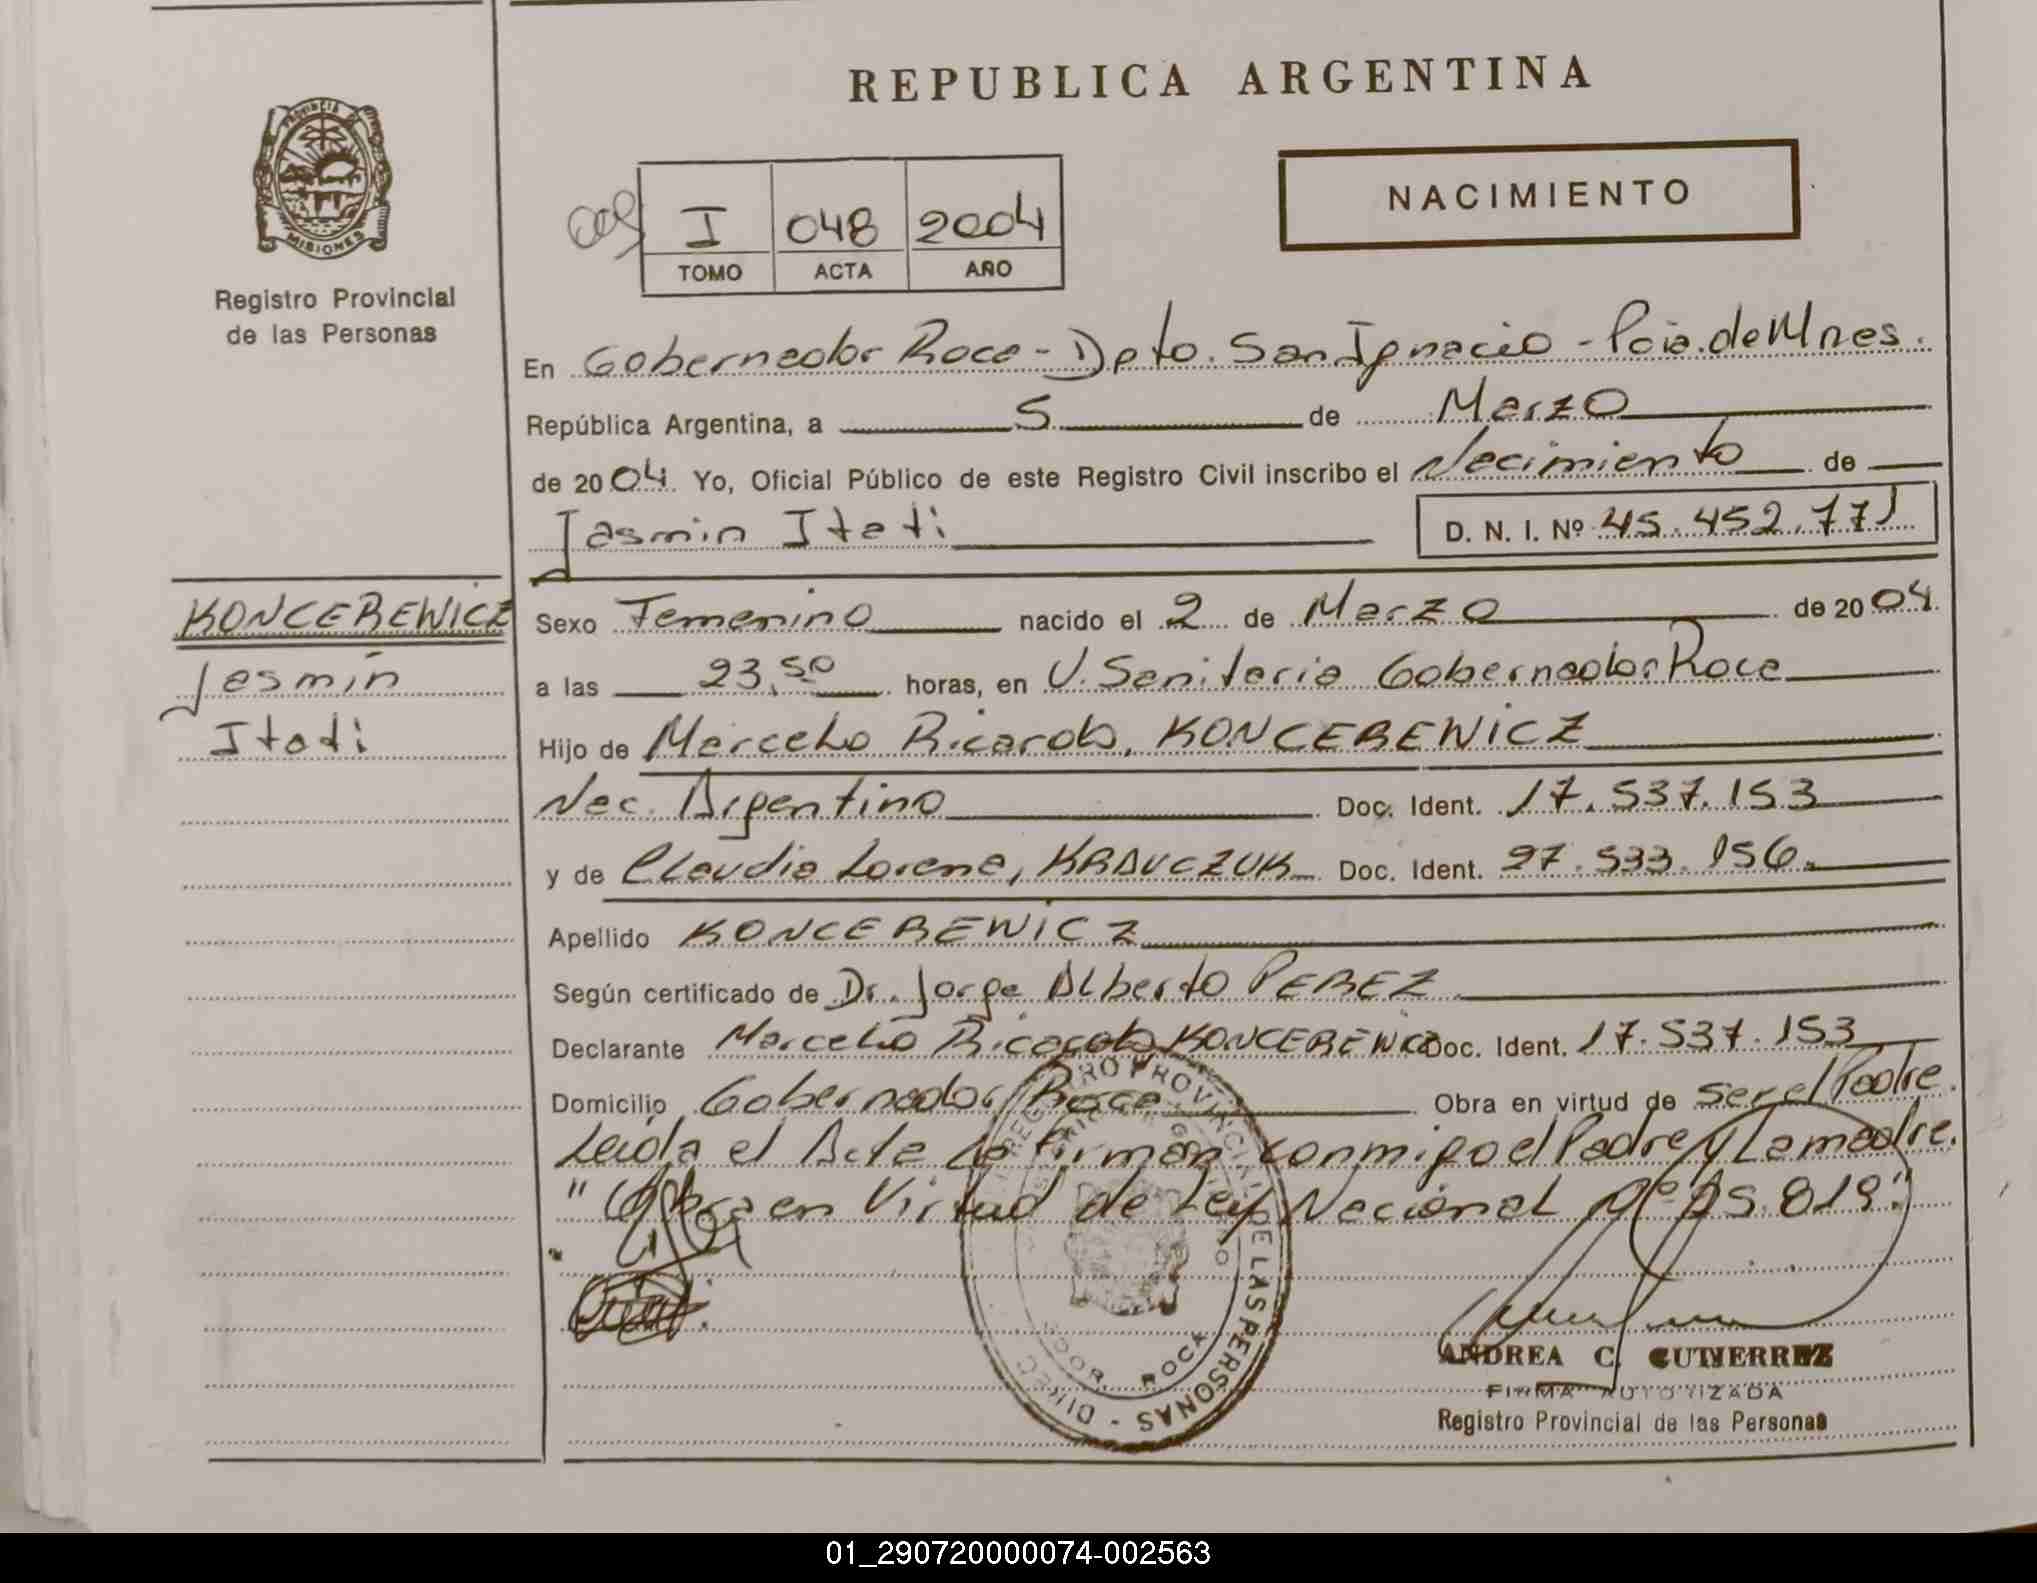 REPUBLICA ARGENTINA
PROVINCIA DE
MISIONES
Registro Provincial
de las Personas
NACIMIENTO
009
I 048 2004
TOMO ACTA AÑO
En Gobernador Roca - Dpto. San Ignacio - Pcia. de Mnes.
República Argentina, a 5 de Marzo
de 2004. Yo, Oficial Público de este Registro Civil inscribo el Nacimiento de
Jasmin Itati D. N. I. Nº 45.452.771
KONCEREWICZ
Jasmin
Itati
Sexo Femenino nacido el 2 de Marzo de 2004.
a las 23,50 horas, en U. Sanitaria Gobernador Roca
Hijo de Marcelo Ricardo, KONCEREWICZ
Nac. Argentino Doc. Ident. 17.537.153
y de Claudia Lorena, KRAVCZUK Doc. Ident. 27.533.156.
Apellido KONCEREWICZ
Según certificado de Dr. Jorge Alberto PEREZ
Declarante Marcelo Ricardo KONCEREWICZ Doc. Ident. 17.537.153
Domicilio Gobernador Roca Obra en virtud de ser el Padre.
Leida el Acta La Firman conmigo el Padre y La madre.
" Obra en Virtud de Ley Nacional Nº 25.819."
REGISTRO PROVINCIAL DE LAS PERSONAS - DIREC
GDOR. ROCA
ANDREA C. GUTIERREZ
FIRMA AUTORIZADA
Registro Provincial de las Personas
01_290720000074-002563